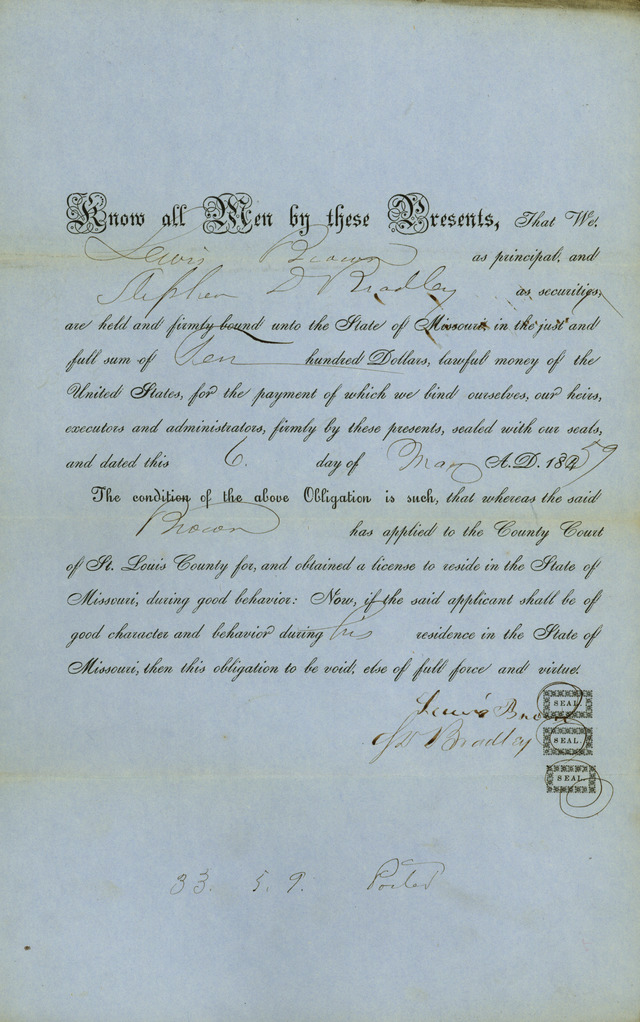 Know all Men by these Presents, That We.
Lewis Brown as principal, and
Stephen D Bradley as securities,
are held and firmly bound unto the State of Missouri in the just and
full sum of Ten hundred Dollars, lawful money of the
United States, for the payment of which we bind ourselves, our heirs,
executors and administrators, firmly by these presents, sealed with our seals,
and dated this 6. day of May A.D. 1859
The condition of the above Obligation is such, that whereas the said
Brown has applied to the County Court
of St. Louis County for, and obtained a license to reside in the State of
Missouri, during good behavior: Now, if the said applicant shall be of
good character and behavior during his residence in the State of
Missouri, then this obligation to be void, else of full force and virtue.
Lewis Brown SEAL.
S D Bradley SEAL.
SEAL.
33. 5. 9. Porter